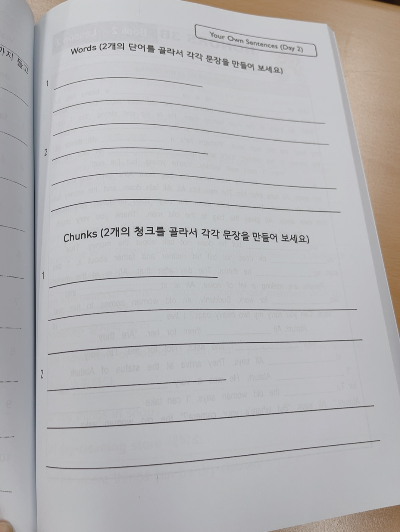 Your Own Sentences (Day 2)
Words (2개의 단어를 골라서 각각 문장을 만들어 보세요)
1
2
Chunks (2개의 청크를 골라서 각각 문장을 만들어 보세요)
1
2